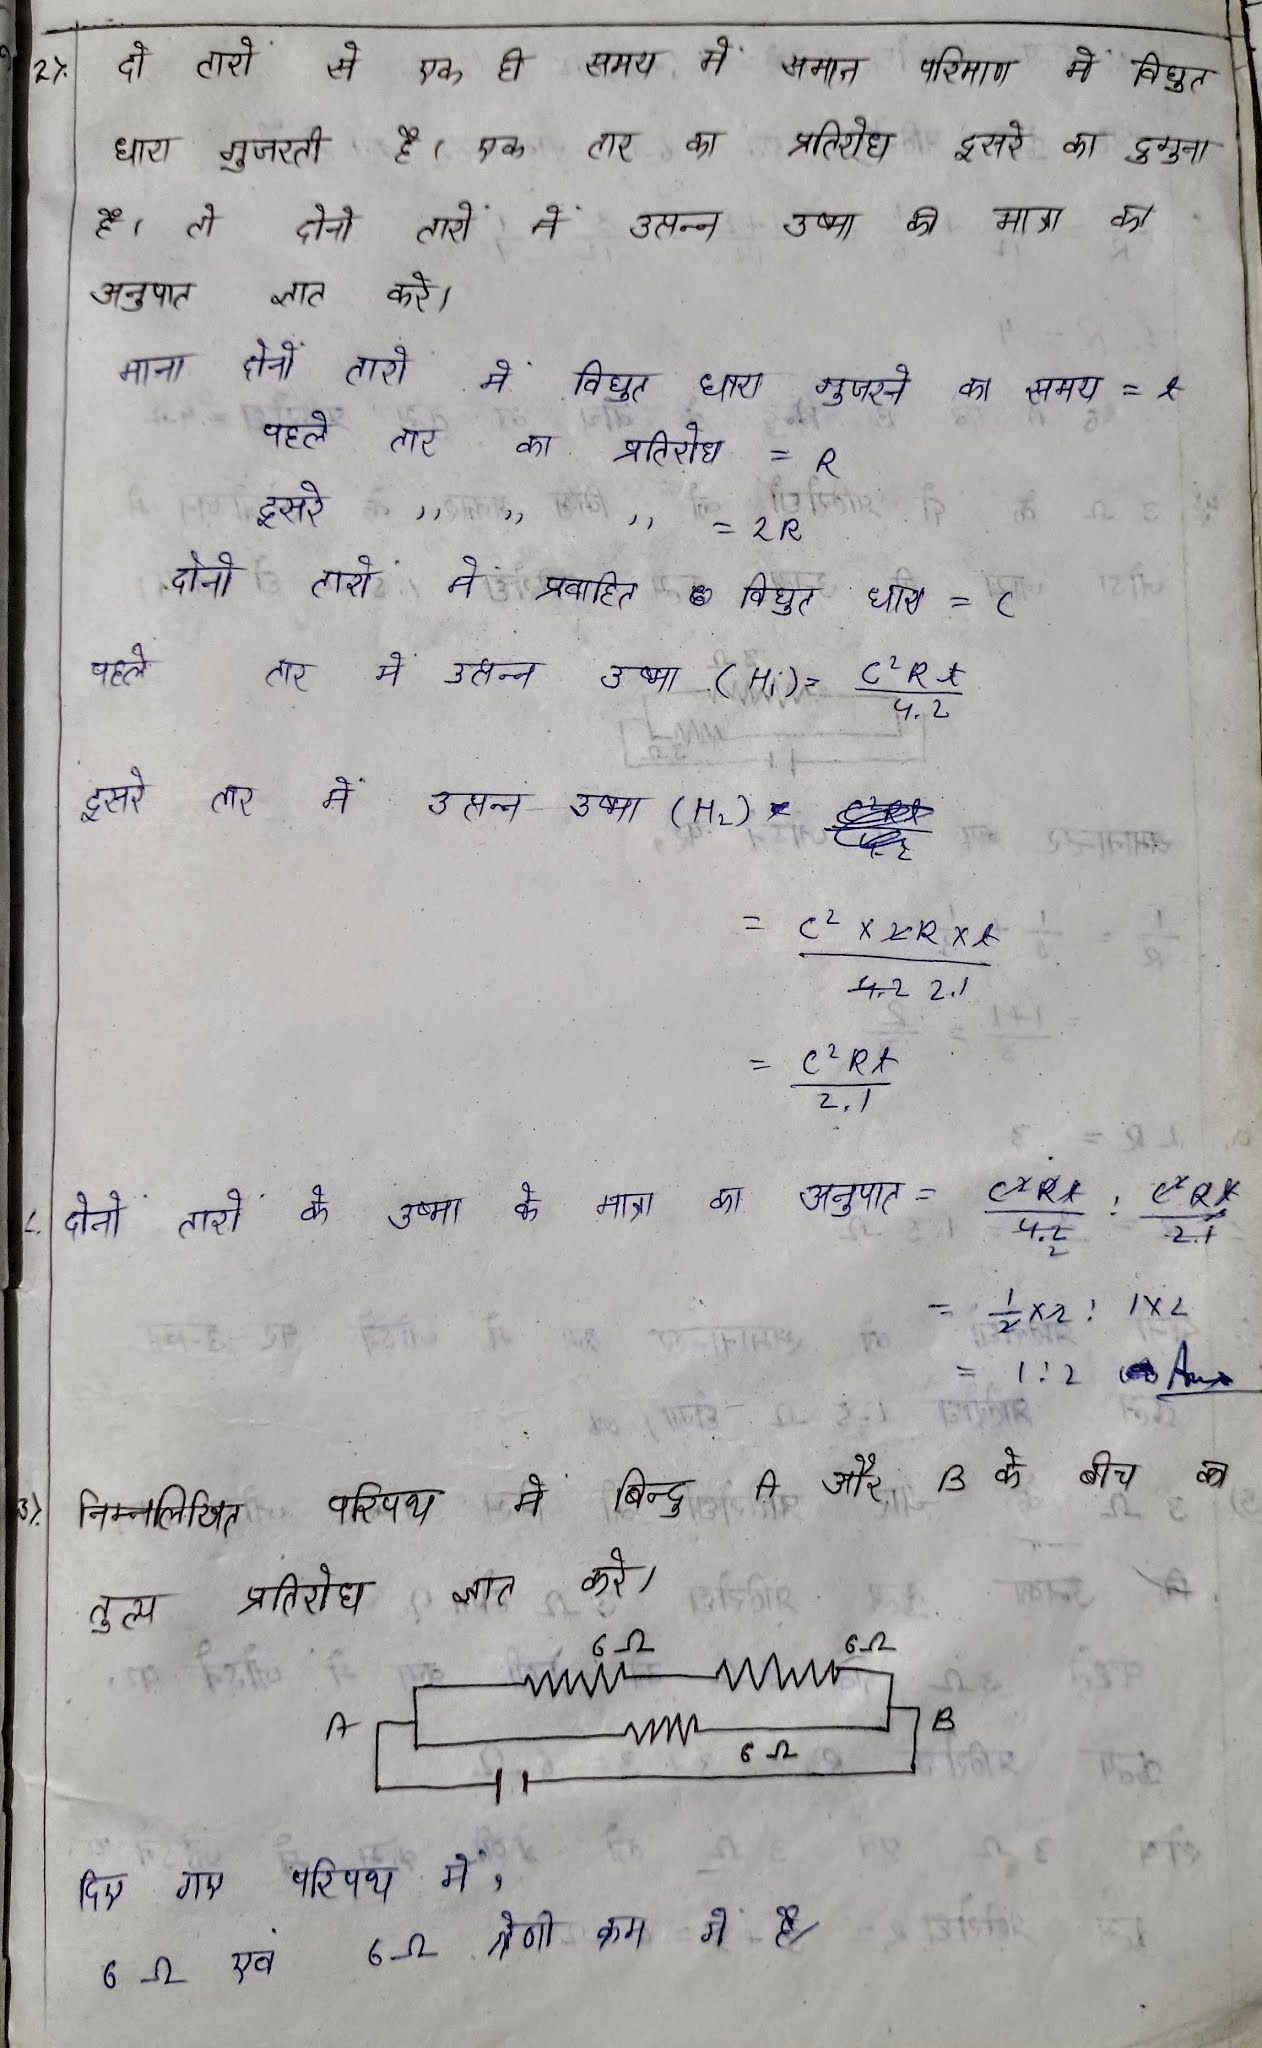 2). दो तारों से एक ही समय में समान परिमाण में विधुत
धारा गुजरती है। एक तार का प्रतिरोध दुसरे का दुगुना
है। तो दोनो तारों में उत्पन्न उष्मा की मात्रा का
अनुपात ज्ञात करे।
माना दोनों तारों में विधुत धारा गुजरने का समय = t
पहले तार का प्रतिरोध = R
दुसरे ,, ,, ,, = 2R
दोनो तारों में प्रवाहित विधुत धारा = C
पहले तार में उत्पन्न उष्मा (H₁) = C²Rt / 4.2
दुसरे तार में उत्पन्न उष्मा (H₂) =
= C² × 2R × t / 4.2 2.1
= C²Rt / 2.1
∴ दोनो तारों के उष्मा के मात्रा का अनुपात = C²Rt / 4.2 2 : C²Rt / 2.1
= 1/2 × 2 : 1 × 2
= 1:2 Ans
3). निम्नलिखित परिपथ में बिन्दु A और B के बीच का
तुल्य प्रतिरोध ज्ञात करे।
6Ω 6Ω
A B
6Ω
दिए गए परिपथ में,
6Ω एवं 6Ω श्रेणी क्रम में है।